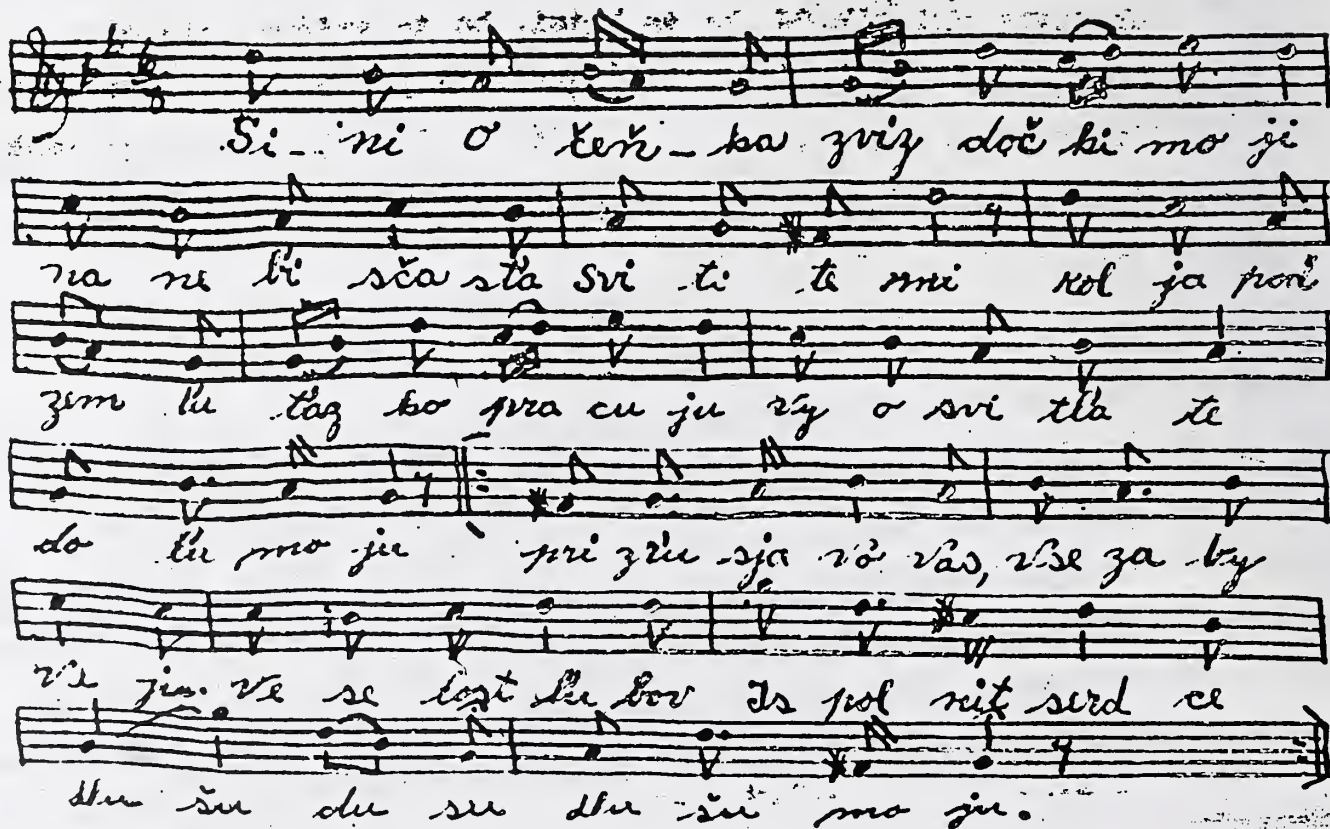 Si - ni o čeň - ka zviz doč ki mo ji
na ne bi sča sťa svi ti te mi kol ja pori
zem ľu ťaz ko pra cu ju vy o svi tľa te
do ľu mo ju pri zľu sja vo vas, vse za by
ve ju. Ve se lost ľu bov Is pol nit serd ce
du šu du su du šu mo ju.